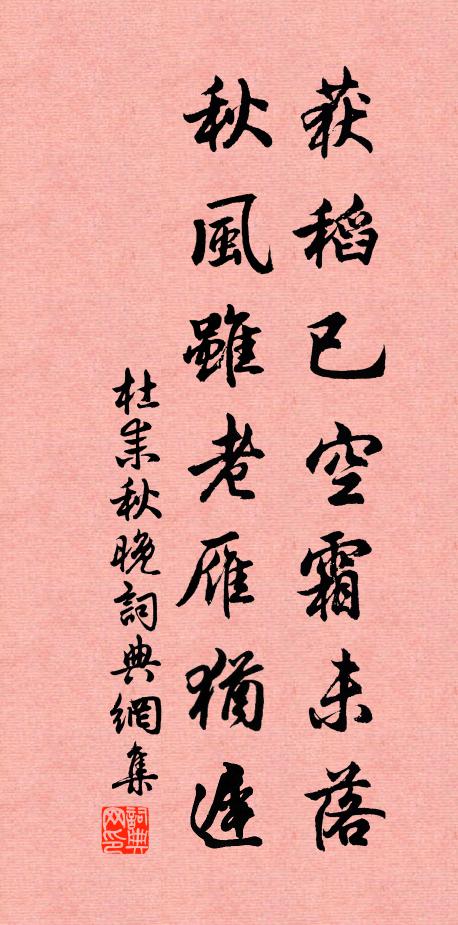 获稻已空霜未落
秋風雖老雁猶遲
杜耒秋晚詞典網集
詞典网印